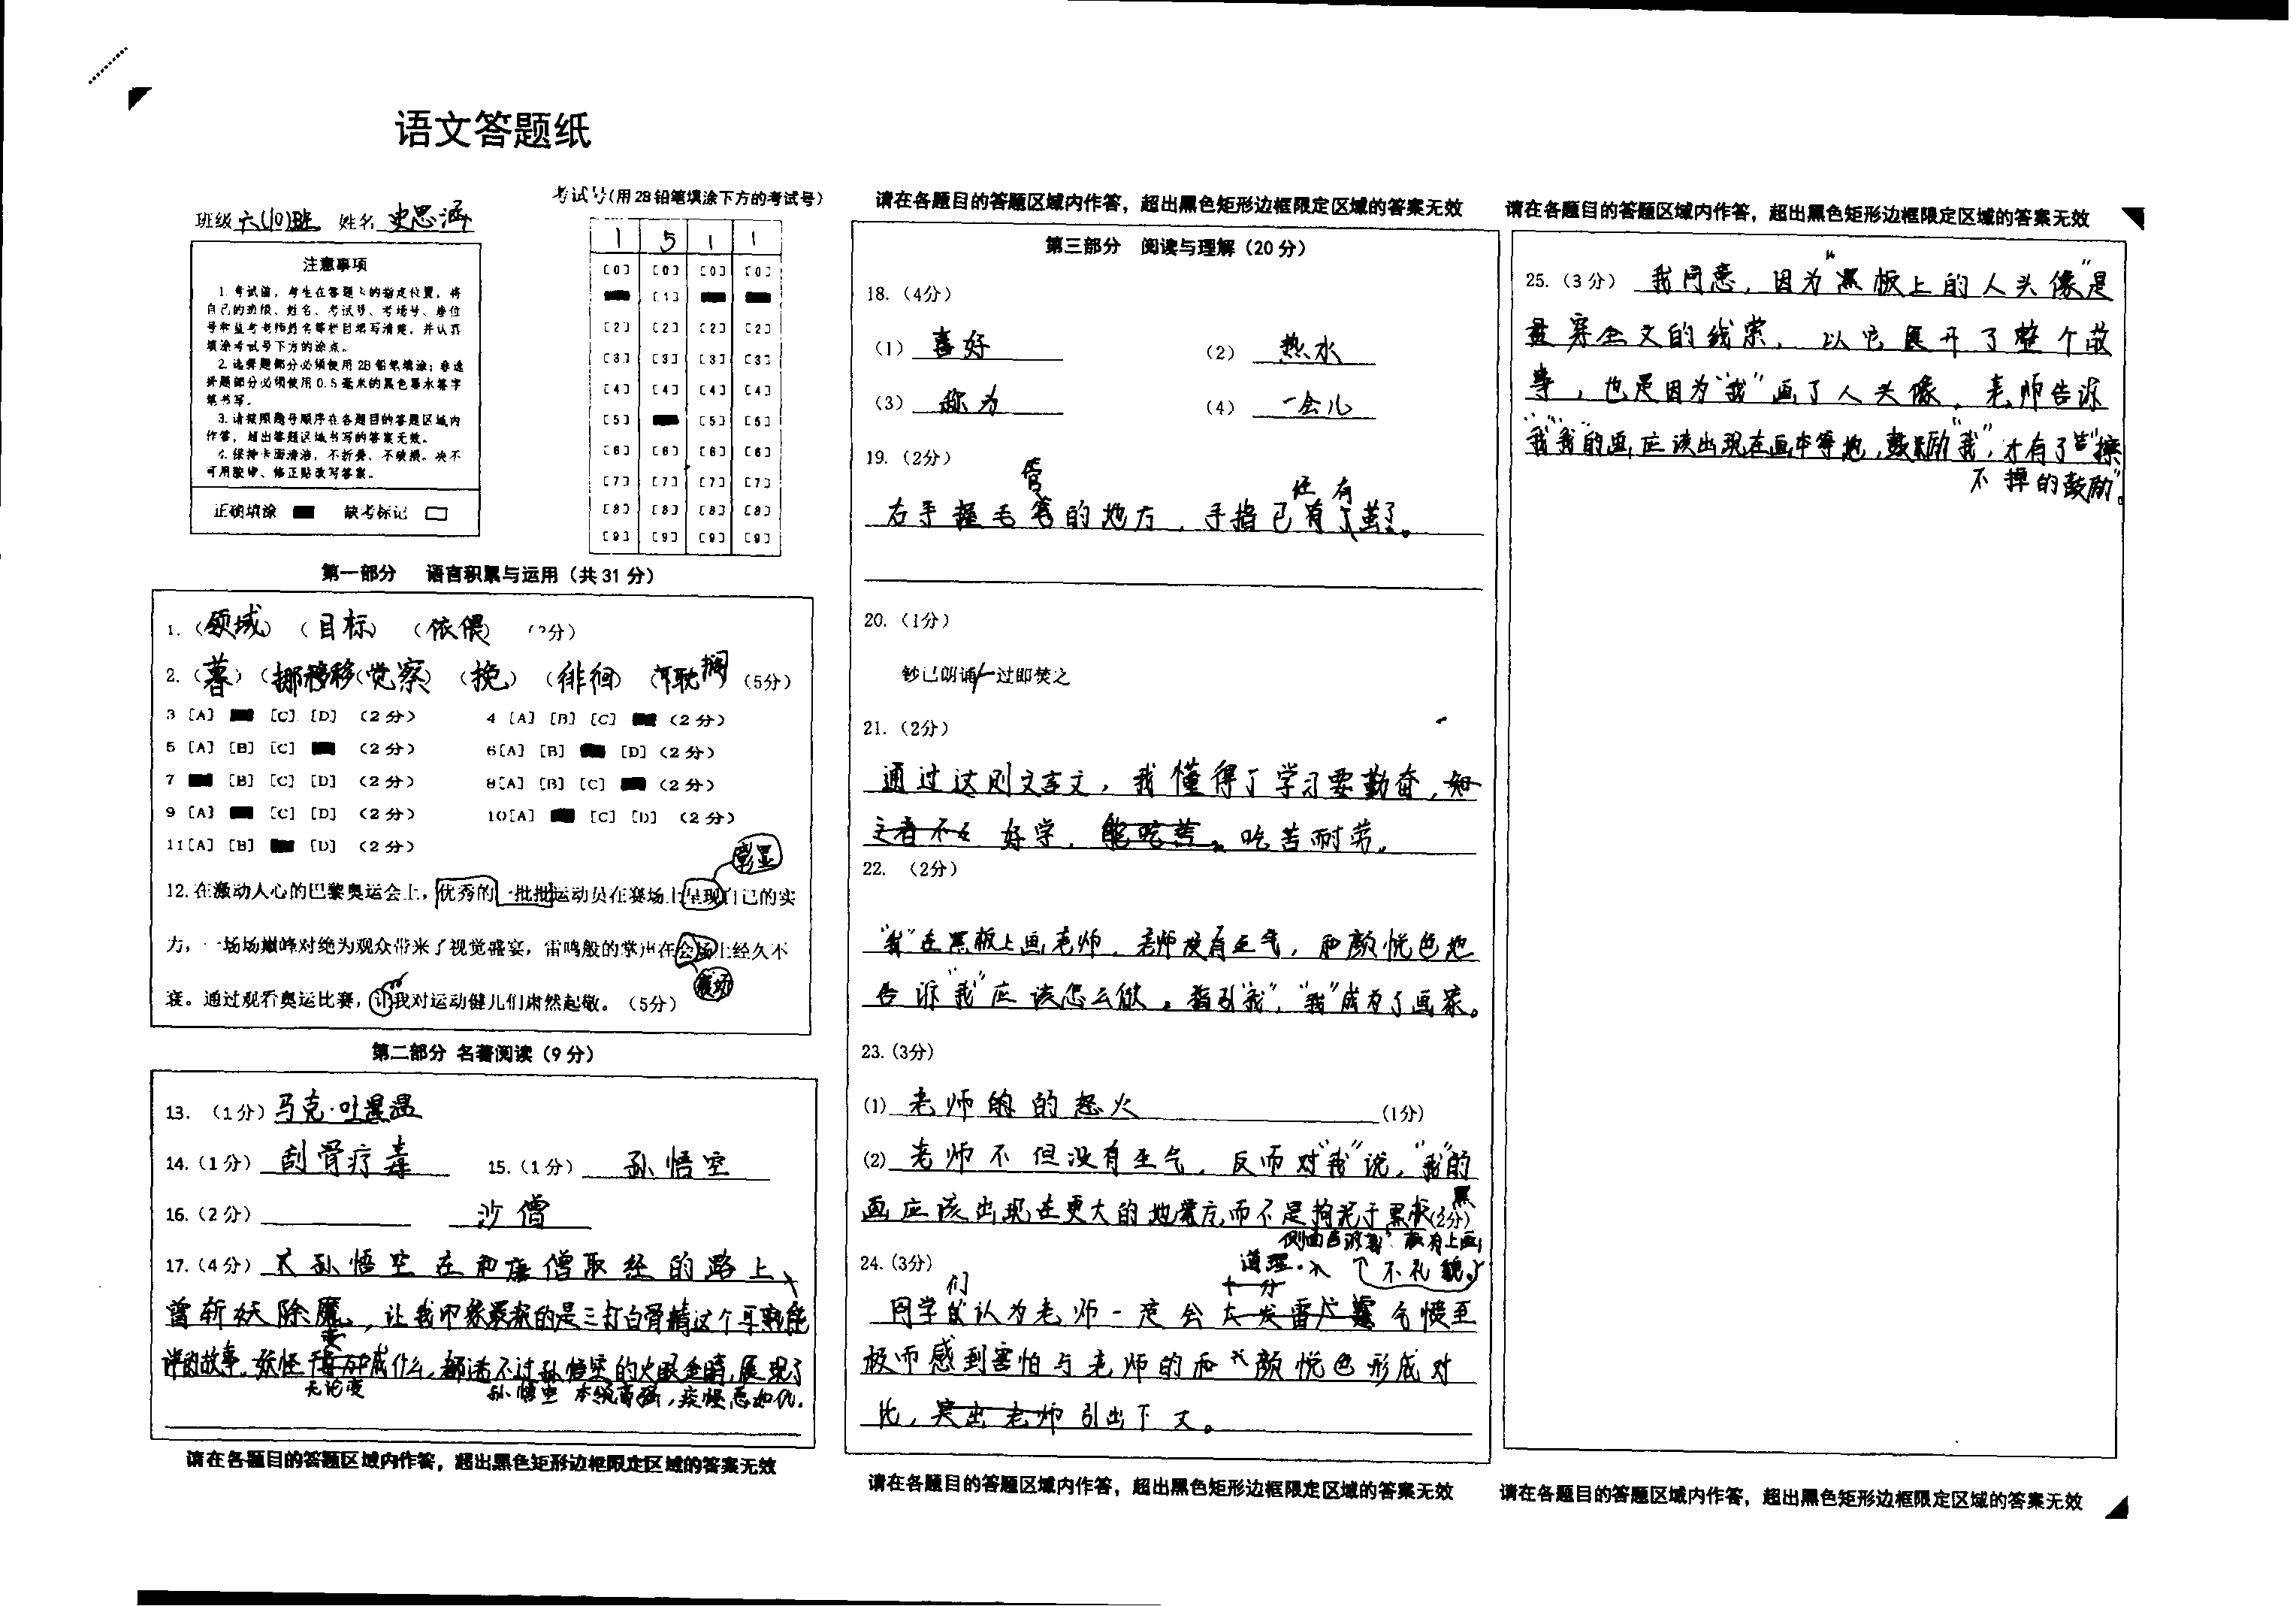 语文答题纸
班级 六(10)班 姓名 史思涵
考试号(用2B铅笔填涂下方的考试号)
1 5 1 1
注意事项
1. 考试前，考生在答题卡的指定位置，将
自己的班级、姓名、考试号、考场号、座位
号和监考老师姓名等栏目填写清楚，并认真
填涂考试号下方的涂点。
2. 选择题部分必须使用2B铅笔填涂；非选
择题部分必须使用0.5毫米的黑色墨水签字
笔书写。
3. 请按照题号顺序在各题目的答题区域内
作答，超出答题区域书写的答案无效。
4. 保持卡面清洁，不折叠、不破损。决不
可用胶带、修正贴改写答案。
正确填涂 缺考标记
[0] [0] [0] [0]
[1]
[2] [2] [2] [2]
[3] [3] [3] [3]
[4] [4] [4] [4]
[5] [5] [5]
[6] [6] [6] [6]
[7] [7] [7] [7]
[8] [8] [8] [8]
[9] [9] [9] [9]
第一部分 语言积累与运用（共31分）
1.（领域）（目标）（依偎）
2.（暮）（挪移）（觉察）（挽）（徘徊）（耽搁）（5分）
3 [A] [C] [D] （2分） 4 [A] [B] [C] （2分）
5 [A] [B] [C] （2分） 6[A] [B] [D]（2分）
7 [B] [C] [D] （2分） 8[A] [B] [C] （2分）
9 [A] [C] [D] （2分） 10[A] [C] [D] （2分）
11[A] [B] [D] （2分）
彰显
12. 在激动人心的巴黎奥运会上，优秀的一批批运动员在赛场上呈现自己的实
力，一场场巅峰对绝为观众带来了视觉盛宴，雷鸣般的掌声在会场上经久不
赛场
衰。通过观看奥运比赛，让我对运动健儿们肃然起敬。（5分）
第二部分 名著阅读（9分）
13. （1分）马克·吐温
14.（1分）刮骨疗毒 15.（1分）孙悟空
16.（2分） 沙僧
17.（4分）孙悟空在和唐僧取经的路上
曾斩妖除魔，让我印象最深的是三打白骨精这个耳熟能
详的故事。妖怪 成什么，都逃不过孙悟空的火眼金睛，展现了
无论变 孙悟空本领高强，疾恶如仇。
请在各题目的答题区域内作答，超出黑色矩形边框限定区域的答案无效
请在各题目的答题区域内作答，超出黑色矩形边框限定区域的答案无效
第三部分 阅读与理解（20分）
18.（4分）
（1）喜好 （2）热水
（3）称为 （4）一会儿
19.（2分）
管 还有
右手握毛笔的地方，手指已有了茧了。
20.（1分）
钞已朗诵/一过即焚之
21.（2分）
通过这则文言文，我懂得了学习要勤奋，知
之者不 好学，能吃苦。吃苦耐劳。
22. （2分）
“我”在黑板上画老师，老师没有生气，和颜悦色地
告诉“我”应该怎么做。指引“我”，“我”成为了画家。
23.（3分）
(1) 老师的怒火 (1分)
(2) 老师不但没有生气，反而对“我”说，“我”的
画应该出现在更大的地方，而不是拘泥于黑板(2分)
24.（3分）
道理。 不礼貌。
同学们认为老师一定会大发雷 气愤至
极而感到害怕与老师的和颜悦色形成对
比，突出老师引出下文。
请在各题目的答题区域内作答，超出黑色矩形边框限定区域的答案无效
请在各题目的答题区域内作答，超出黑色矩形边框限定区域的答案无效
25.（3分）我同意，因为“黑板上的人头像”是
贯穿全文的线索，以它展开了整个故
事，也是因为“我”画了人头像，老师告诉
“我”“我”的画应该出现在画中等地，鼓励“我”，才有了“擦
不掉的鼓励”。
请在各题目的答题区域内作答，超出黑色矩形边框限定区域的答案无效